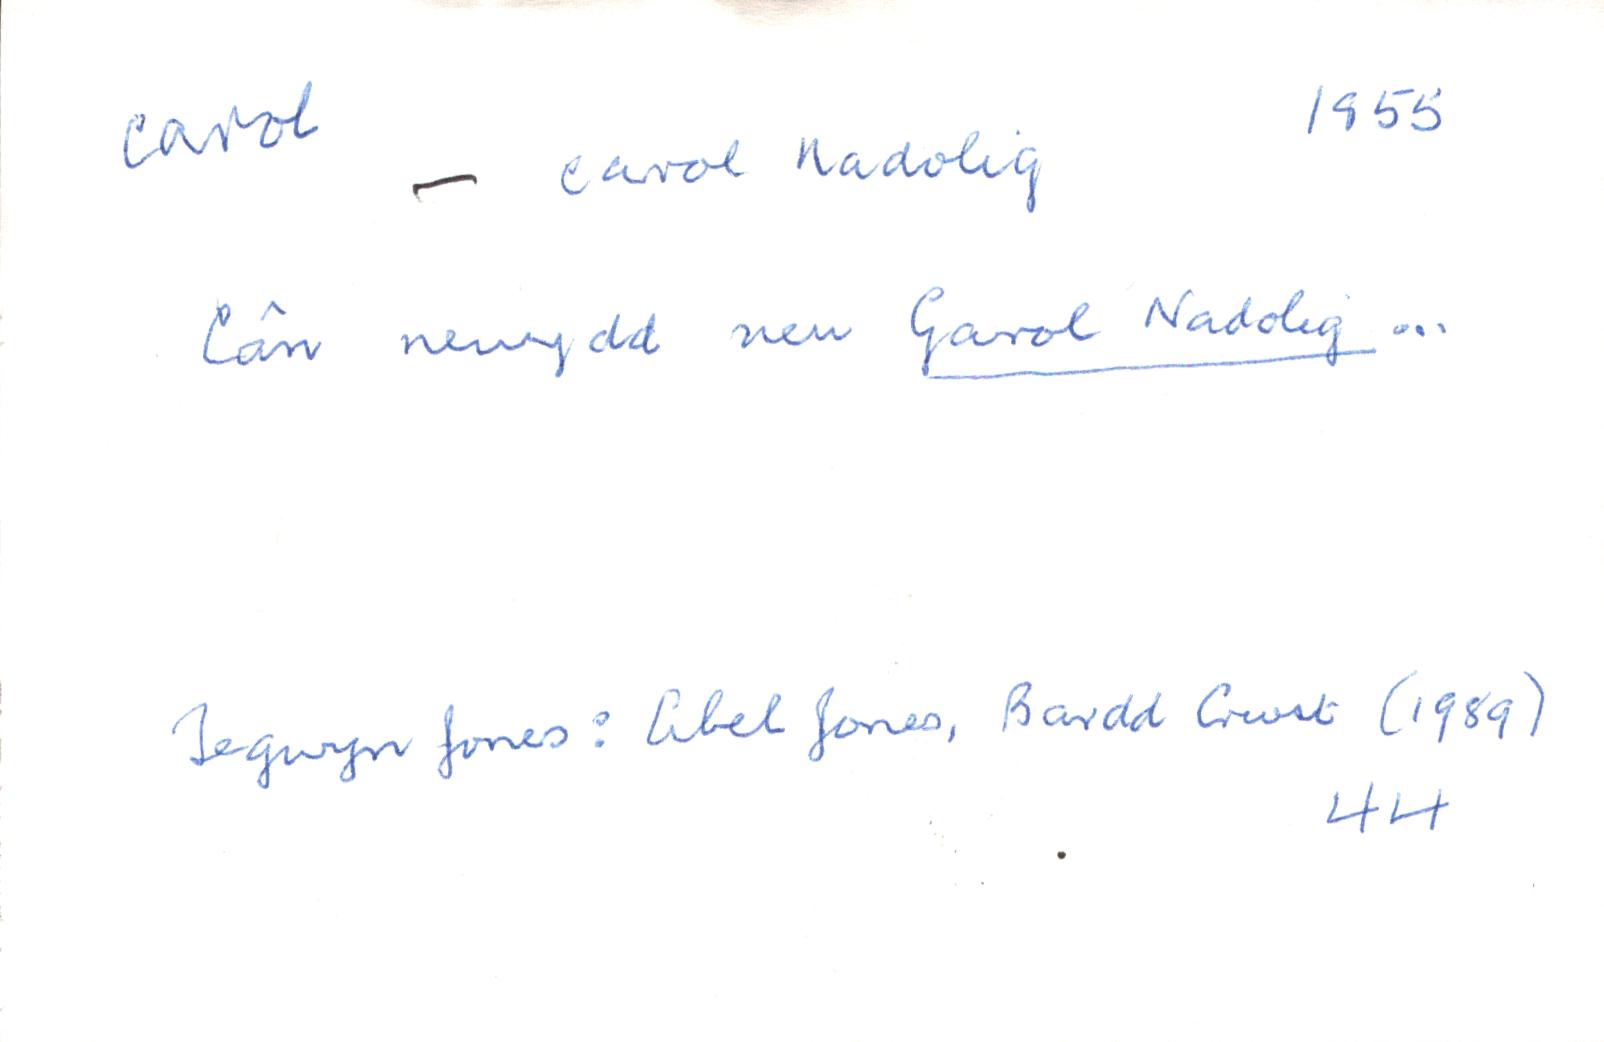 carol 1955
— carol Nadolig
Cân newydd neu Garol Nadolig ...
Tegwyn Jones: Abel Jones, Bardd Crwst (1989)
44